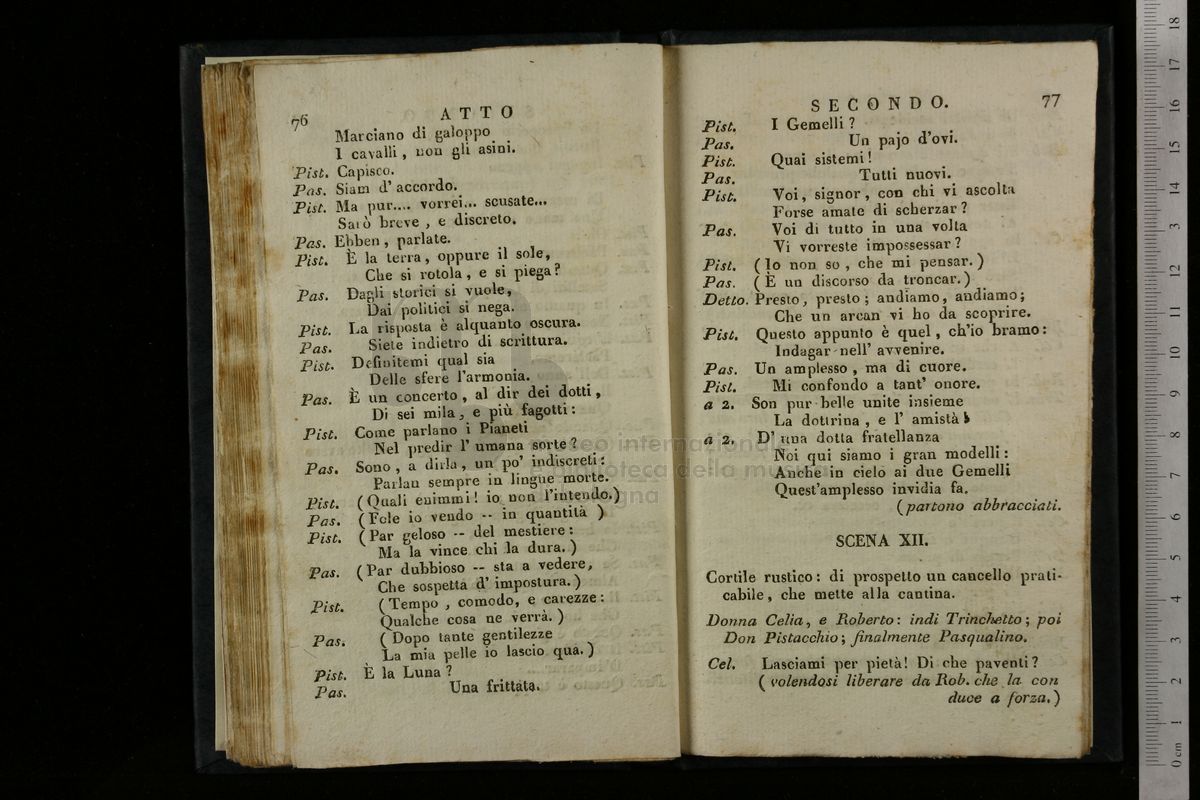 76 ATTO
Marciano di galoppo
I cavalli, non gli asini.
Pist. Capisco.
Pas. Siam d'accordo.
Pist. Ma pur.... vorrei... scusate...
Sarò breve, e discreto.
Pas. Ebben, parlate.
Pist. È la terra, oppure il sole,
Che si rotola, e si piega?
Pas. Dagli storici si vuole,
Dai politici si nega.
Pist. La risposta è alquanto oscura.
Pas. Siete indietro di scrittura.
Pist. Definitemi qual sia
Delle sfere l'armonia.
Pas. È un concerto, al dir dei dotti,
Di sei mila, e più fagotti:
Pist. Come parlano i Pianeti
Nel predir l'umana sorte?
Pas. Sono, a dirla, un po' indiscreti:
Parlan sempre in lingue morte.
Pist. (Quali enimmi! io non l'intendo.)
Pas. (Fole io vendo -- in quantità )
Pist. (Par geloso -- del mestiere:
Ma la vince chi la dura.)
Pas. (Par dubbioso -- sta a vedere,
Che sospetta d'impostura.)
Pist. (Tempo, comodo, e carezze:
Qualche cosa ne verrà.)
Pas. (Dopo tante gentilezze
La mia pelle io lascio quà.)
Pist. È la Luna?
Pas. Una frittata.
SECONDO. 77
Pist. I Gemelli?
Pas. Un pajo d'ovi.
Pist. Quai sistemi!
Pas. Tutti nuovi.
Pist. Voi, signor, con chi vi ascolta
Forse amate di scherzar?
Pas. Voi di tutto in una volta
Vi vorreste impossessar?
Pist. (Io non so, che mi pensar.)
Pas. (È un discorso da troncar.)
Detto. Presto, presto; andiamo, andiamo;
Che un arcan vi ho da scoprire.
Pist. Questo appunto è quel, ch'io bramo:
Indagar nell' avvenire.
Pas. Un amplesso, ma di cuore.
Pist. Mi confondo a tant' onore.
a 2. Son pur belle unite insieme
La dottrina, e l' amistà!
a 2. D' una dotta fratellanza
Noi qui siamo i gran modelli:
Anche in cielo ai due Gemelli
Quest'amplesso invidia fa.
(partono abbracciati.
SCENA XII.
Cortile rustico: di prospetto un cancello prati-
cabile, che mette alla cantina.
Donna Celia, e Roberto: indi Trinchetto; poi
Don Pistacchio; finalmente Pasqualino.
Cel. Lasciami per pietà! Di che paventi?
(volendosi liberare da Rob. che la con
duce a forza.)
museo internazionale
e biblioteca della musica
di bologna
0 cm 1 2 3 4 5 6 7 8 9 10 11 12 13 14 15 16 17 18